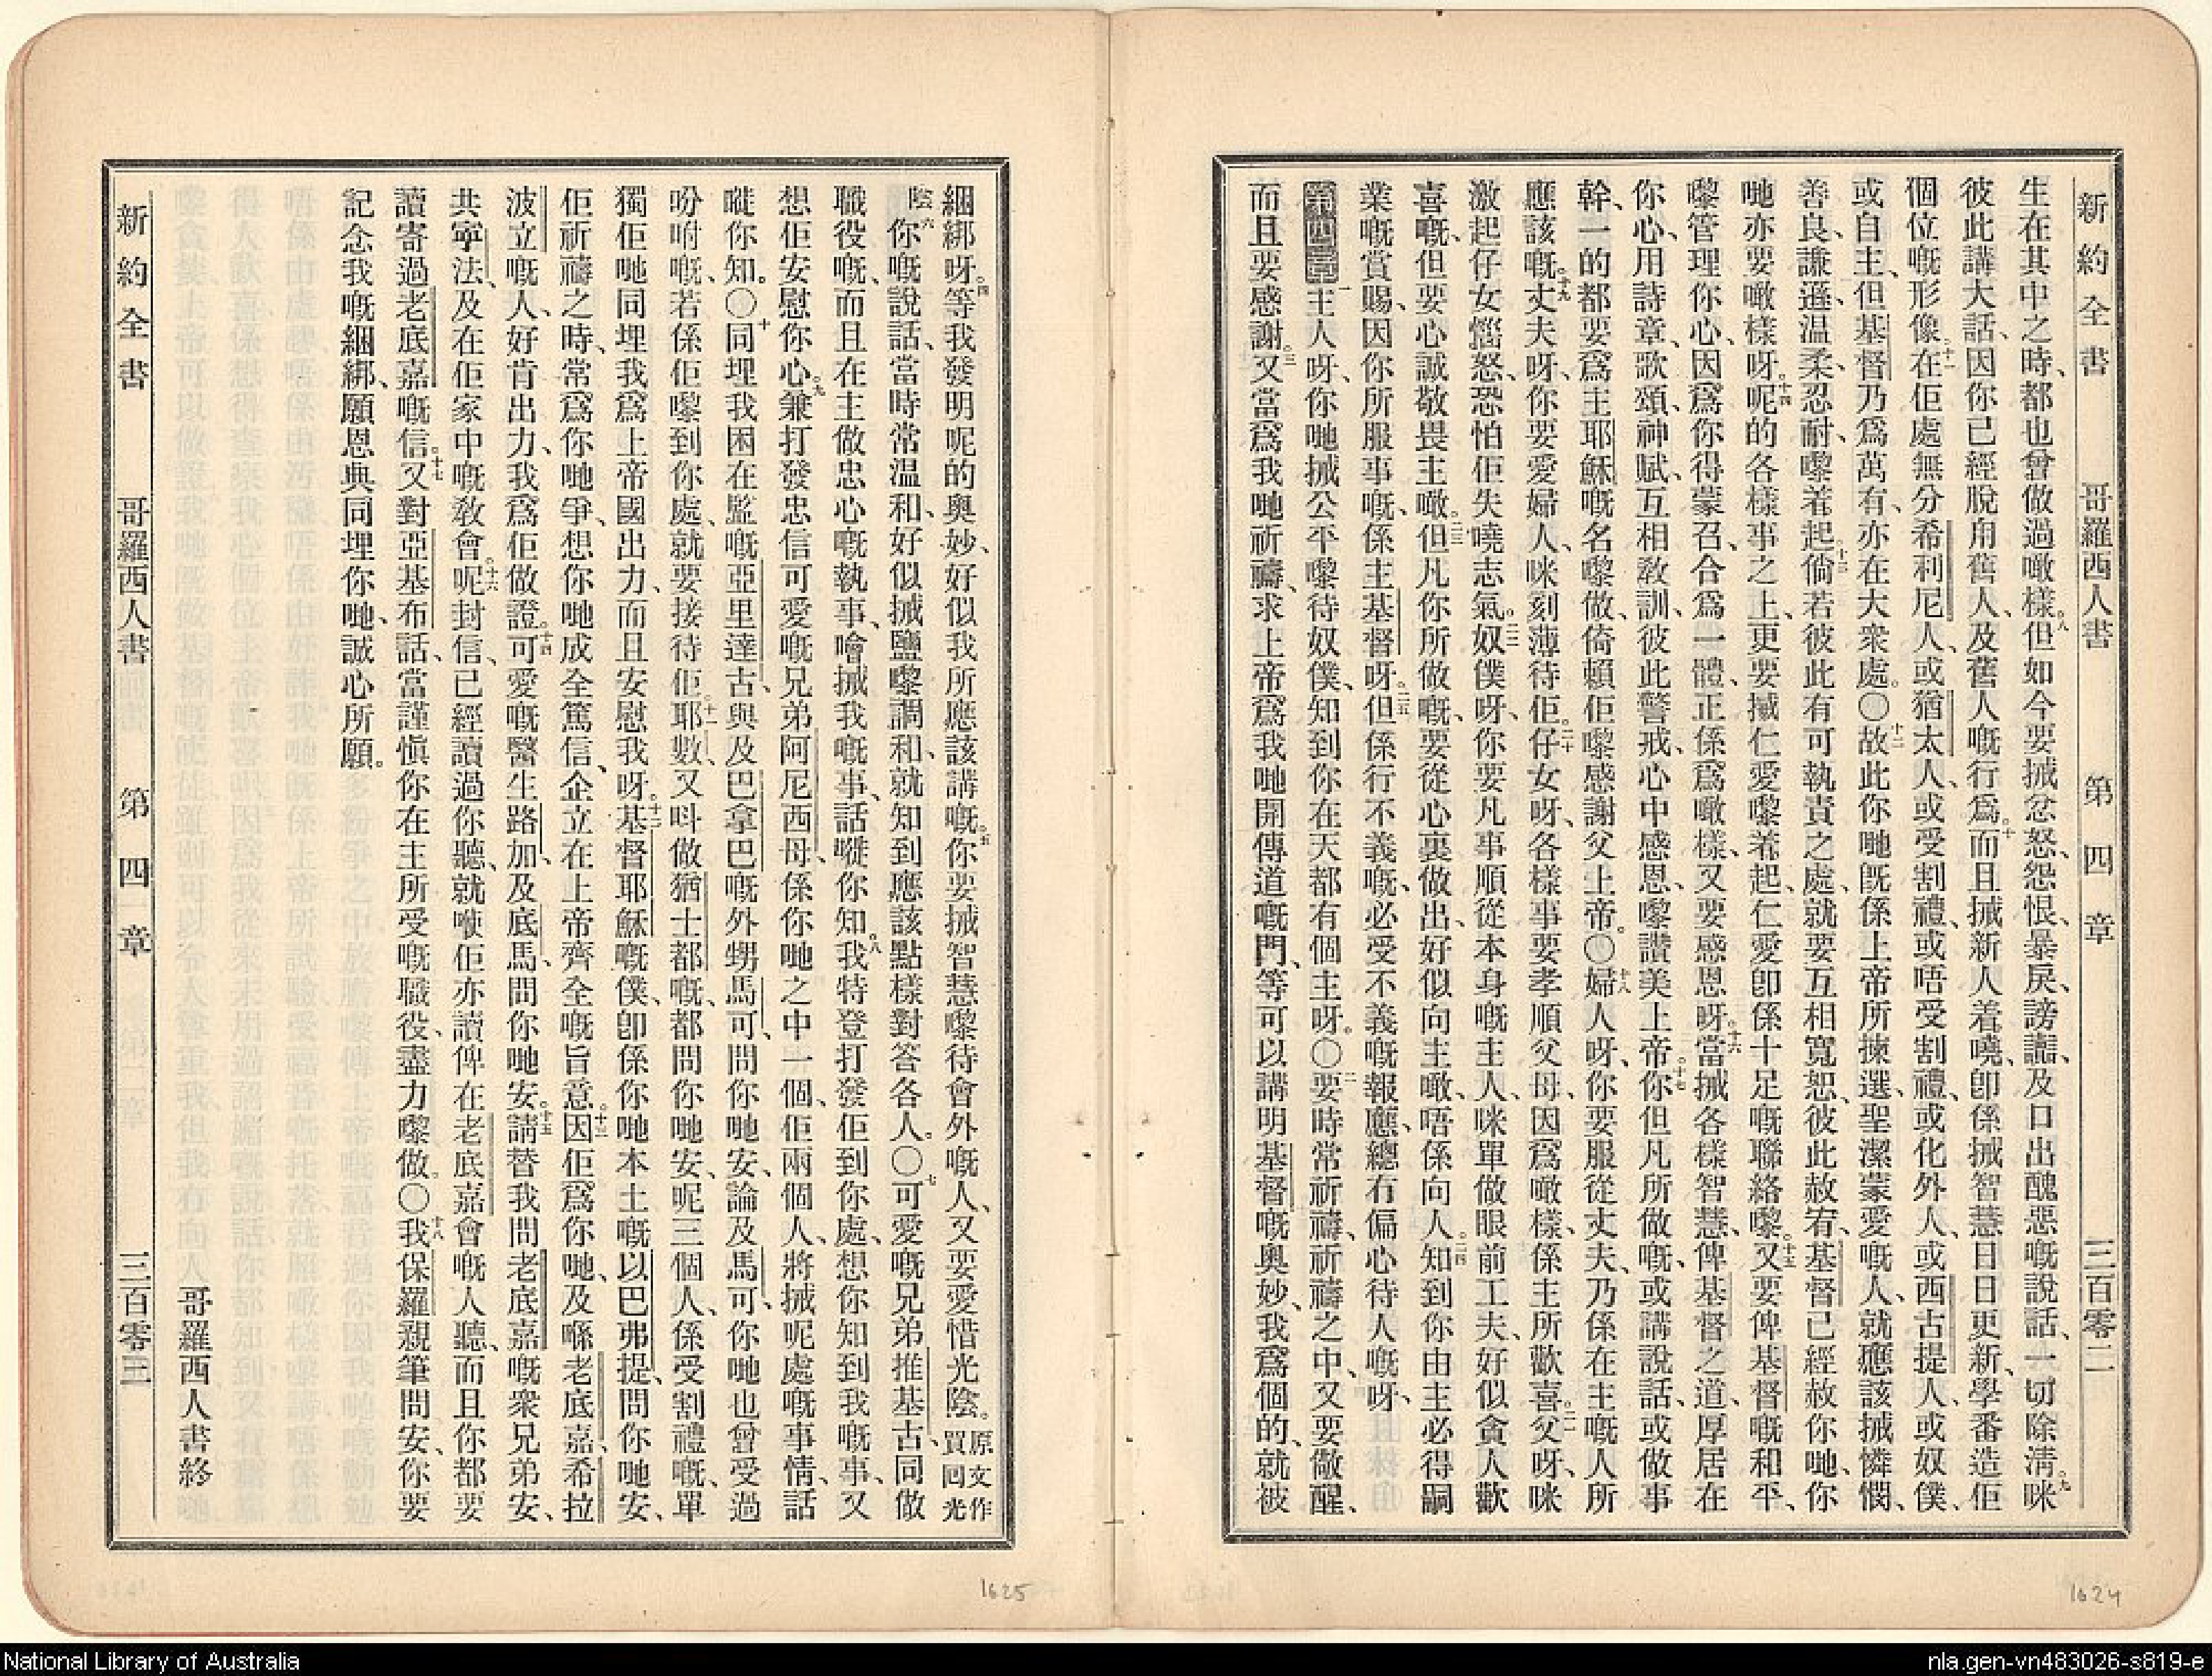 新約全書 哥羅西人書 第四章 三百零二
生在其中之時、都也曾做過噉樣。八但如今要搣忿怒、怨恨、暴戾、謗讟、及口出醜惡嘅說話、一切除淸。九咪
彼此講大話、因你已經脫甪舊人、及舊人嘅行爲。十而且搣新人着嘵、卽係搣智慧日日更新、學番造佢
個位嘅形像。十一在佢處無分希利尼人、或猶太人、或受割禮、或唔受割禮、或化外人、或西古提人、或奴僕、
或自主、但基督乃爲萬有、亦在大衆處。〇十二故此你哋旣係上帝所揀選、聖潔蒙愛嘅人、就應該搣憐憫、
善良、謙遜、温柔、忍耐、嚟着起。十三倘若彼此有可執責之處、就要互相寬恕、彼此赦宥、基督已經赦你哋、你
哋亦要噉樣呀。十四呢的各樣事之上、更要搣仁愛嚟着起、仁愛卽係十足嘅聯絡嚟。十五又要俾基督嘅和平、
嚟管理你心、因爲你得蒙召、合爲一體、正係爲噉樣、又要感恩呀。十六當搣各樣智慧、俾基督之道、厚居在
你心、用詩章、歌頌、神賦、互相敎訓、彼此警戒、心中感恩、嚟讚美上帝。十七你但凡所做嘅、或講說話、或做事
幹、一的都要爲主耶穌嘅名嚟做、倚賴佢嚟感謝父上帝。〇十八婦人呀、你要服從丈夫、乃係在主嘅人所
應該嘅。十九丈夫呀、你要愛婦人、咪刻薄待佢。二十仔女呀、各樣事要孝順父母、因爲噉樣、係主所歡喜。二一父呀、咪
激起仔女惱怒、恐怕佢失嘵志氣。二二奴僕呀、你要凡事順從本身嘅主人、咪單做眼前工夫、好似貪人歡
喜嘅、但要心誠敬畏主噉。二三但凡你所做嘅、要從心裏做出、好似向主噉、唔係向人。二四知到你由主必得嗣
業嘅賞賜、因你所服事嘅、係主基督呀。二五但係行不義嘅、必受不義嘅報應、總冇偏心待人嘅呀、
第四章一主人呀、你哋搣公平嚟待奴僕、知到你在天都有個主呀。〇二要時常祈禱、祈禱之中、又要儆醒、
而且要感謝。三又當爲我哋祈禱、求上帝爲我哋開傳道嘅門、等可以講明基督嘅奧妙、我爲個的、就被
1624
綑綁呀。四等我發明呢的奥妙、好似我所應該講嘅。五你要搣智慧嚟待會外嘅人、又要愛惜光陰。原文作買囘光
陰六你嘅說話、當時常温和、好似搣鹽嚟調和、就知到應該點樣對答各人。〇七可愛嘅兄弟推基古、同做
職役嘅、而且在主做忠心嘅執事、噲搣我嘅事、話嚹你知。八我特登打發佢到你處、想你知到我嘅事、又
想佢安慰你心。九兼打發忠信可愛嘅兄弟阿尼西母、係你哋之中一個、佢兩個人、將搣呢處嘅事情、話
嚹你知。〇十同埋我困在監嘅亞里達古、與及巴拿巴嘅外甥馬可、問你哋安、論及馬可、你哋也曾受過
吩咐嘅、若係佢嚟到你處、就要接待佢。十一耶數、又呌做猶士都嘅、都問你哋安、呢三個人、係受割禮嘅、單
獨佢哋同埋我爲上帝國出力、而且安慰我呀。十二基督耶穌嘅僕、卽係你哋本土嘅以巴弗提、問你哋安、
佢祈禱之時、常爲你哋爭、想你哋成全篤信、企立在上帝齊全嘅旨意。十三因佢爲你哋、及喺老底嘉、希拉
波立嘅人、好肯出力、我爲佢做證。十四可愛嘅醫生路加、及底馬、問你哋安。十五請替我問老底嘉嘅衆兄弟安、
共寧法、及在佢家中嘅敎會。十六呢封信、已經讀過你聽、就㗎佢亦讀俾在老底嘉會嘅人聽、而且你都要
讀寄過老底嘉嘅信。十七又對亞基布話、當謹愼你在主所受嘅職役、盡力嚟做。〇十八我保羅親筆問安、你要
記念我嘅綑綁、願恩典同埋你哋、誠心所願。
哥羅西人書終
新約全書 哥羅西人書 第四章 三百零三
1625
National Library of Australia
nla.gen-vn483026-s819-e